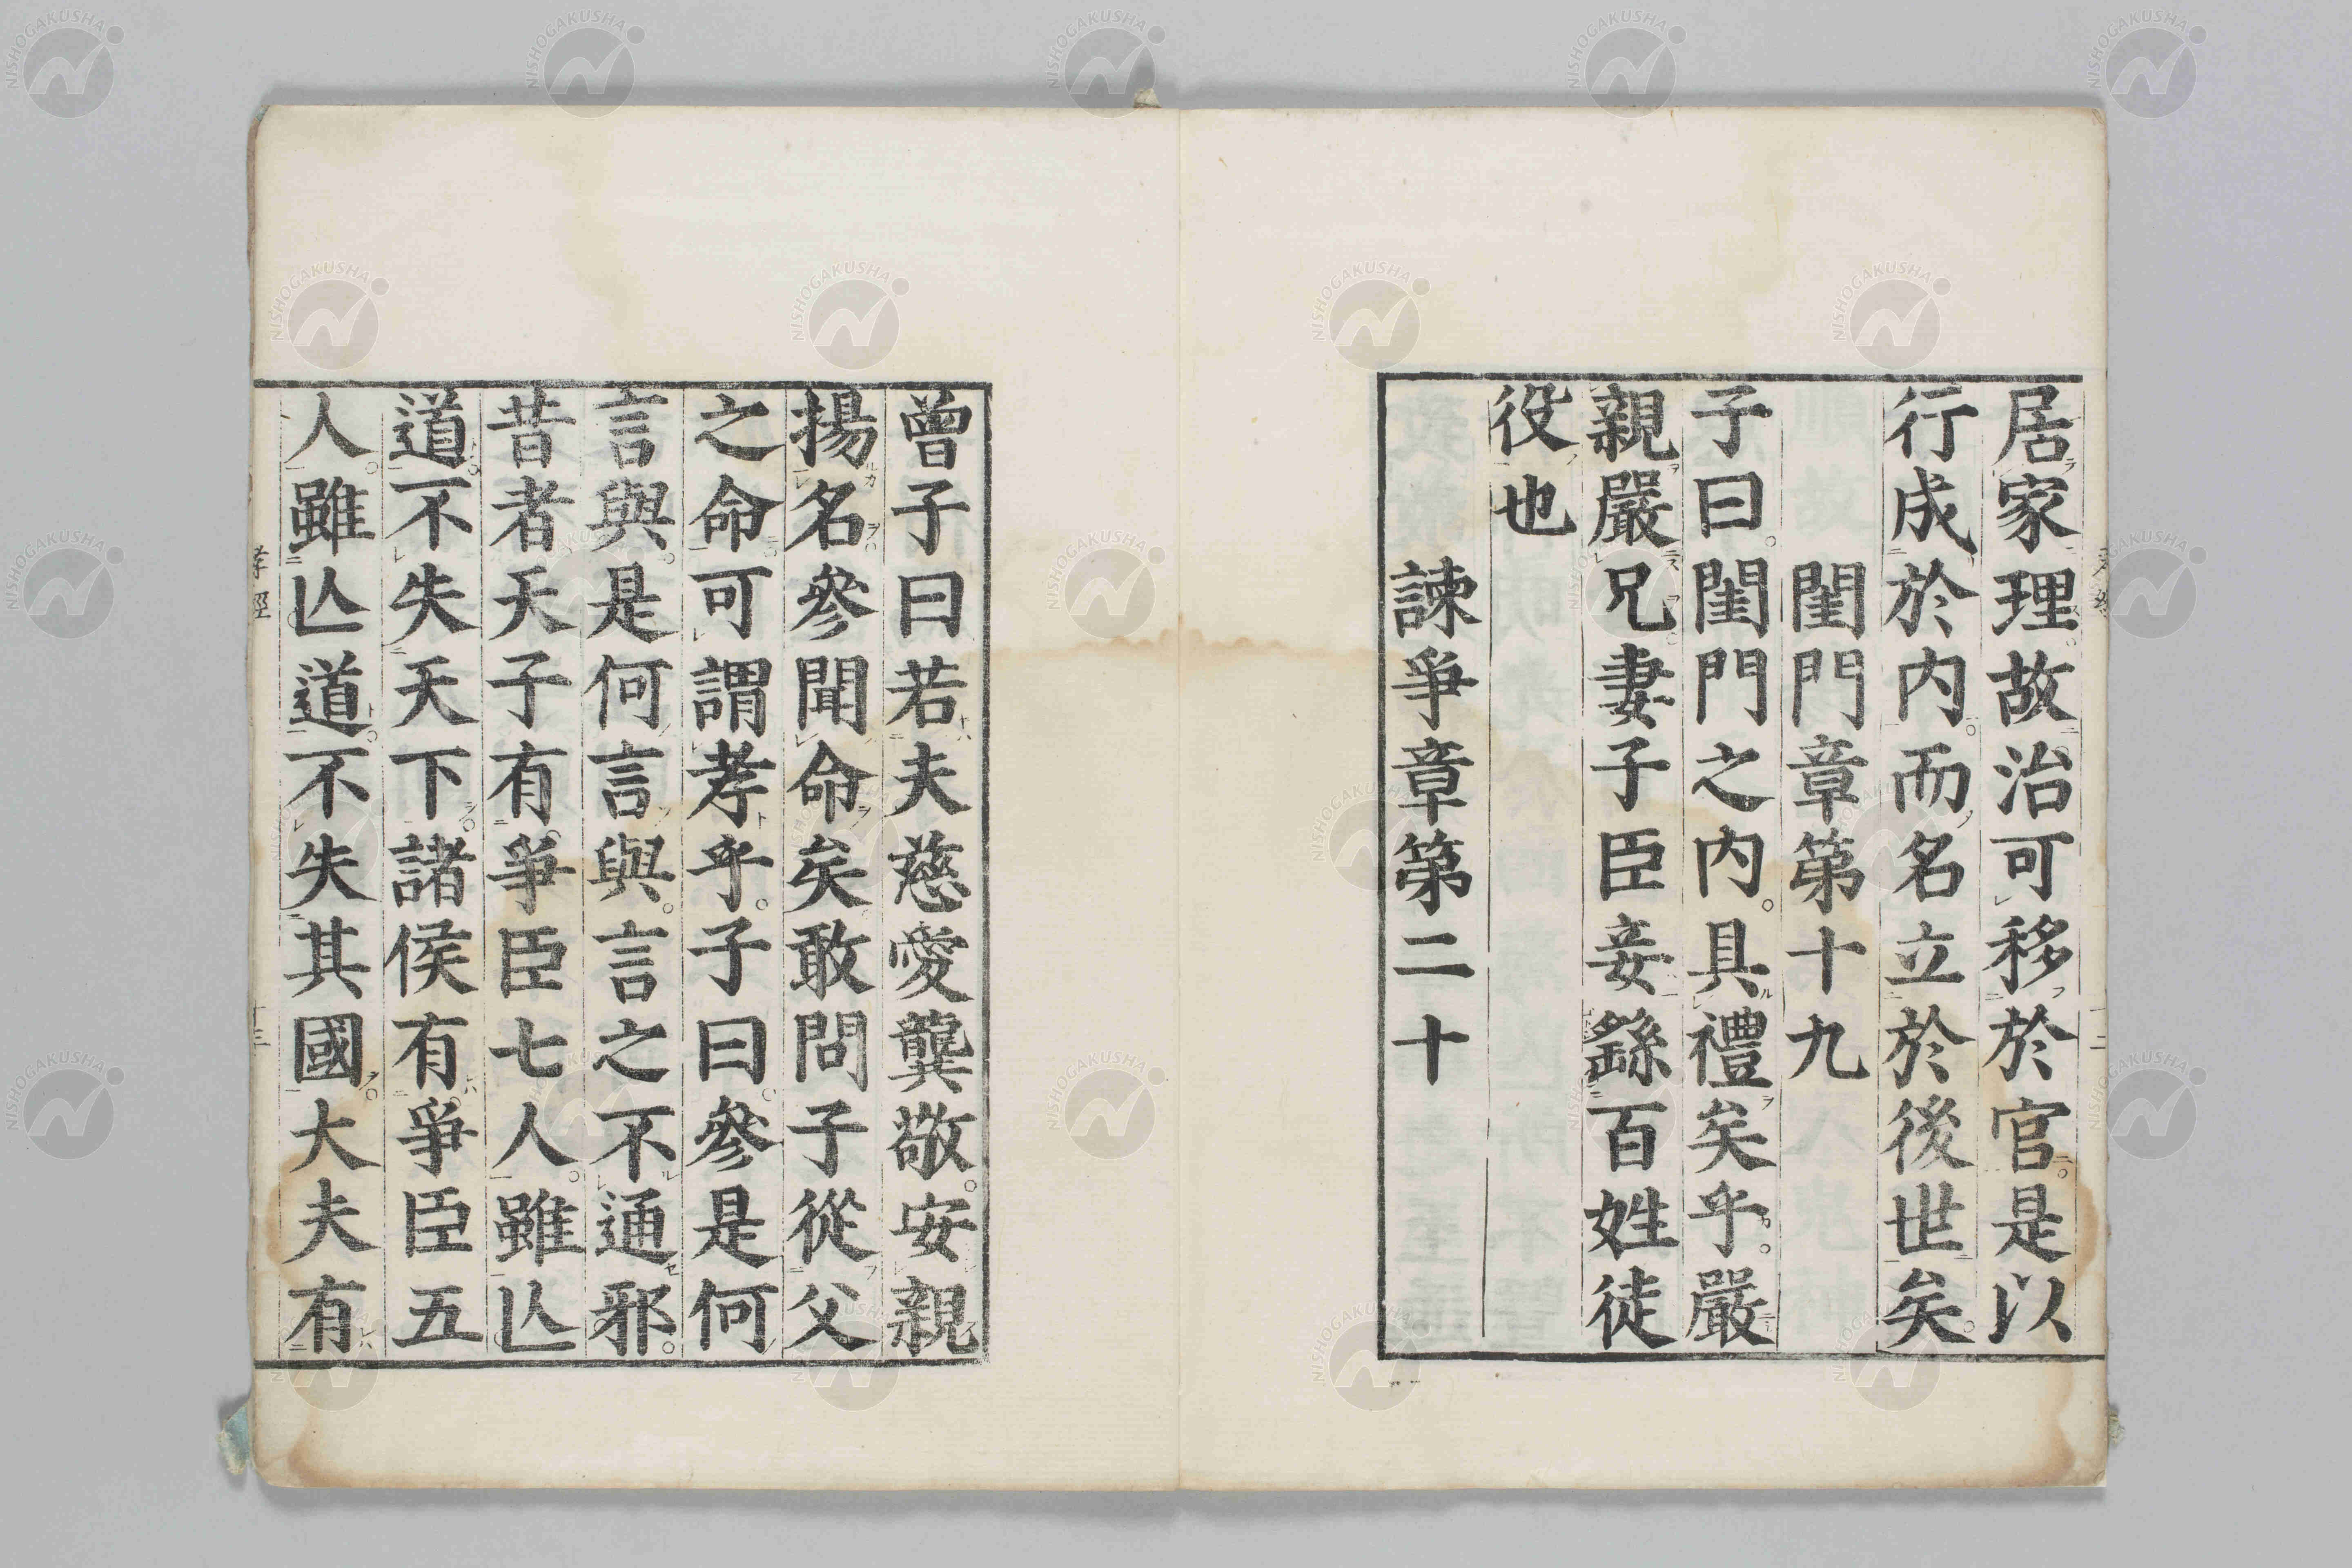 居家理故治可移於官是以
行成於内而名立於後世矣
閨門章第十九
子曰閨門之内具禮矣乎嚴
親嚴兄妻子臣妾繇百姓徒
役也
諫爭章第二十
曾子曰若夫慈愛龔敬安親
揚名參聞命矣敢問子從父
之命可謂孝乎子曰參是何
言與是何言與言之不通邪
昔者天子有爭臣七人雖亾
道不失天下諸侯有爭臣五
人雖亾道不失其國大夫有
孝經
十三
NISHOGAKUSHA